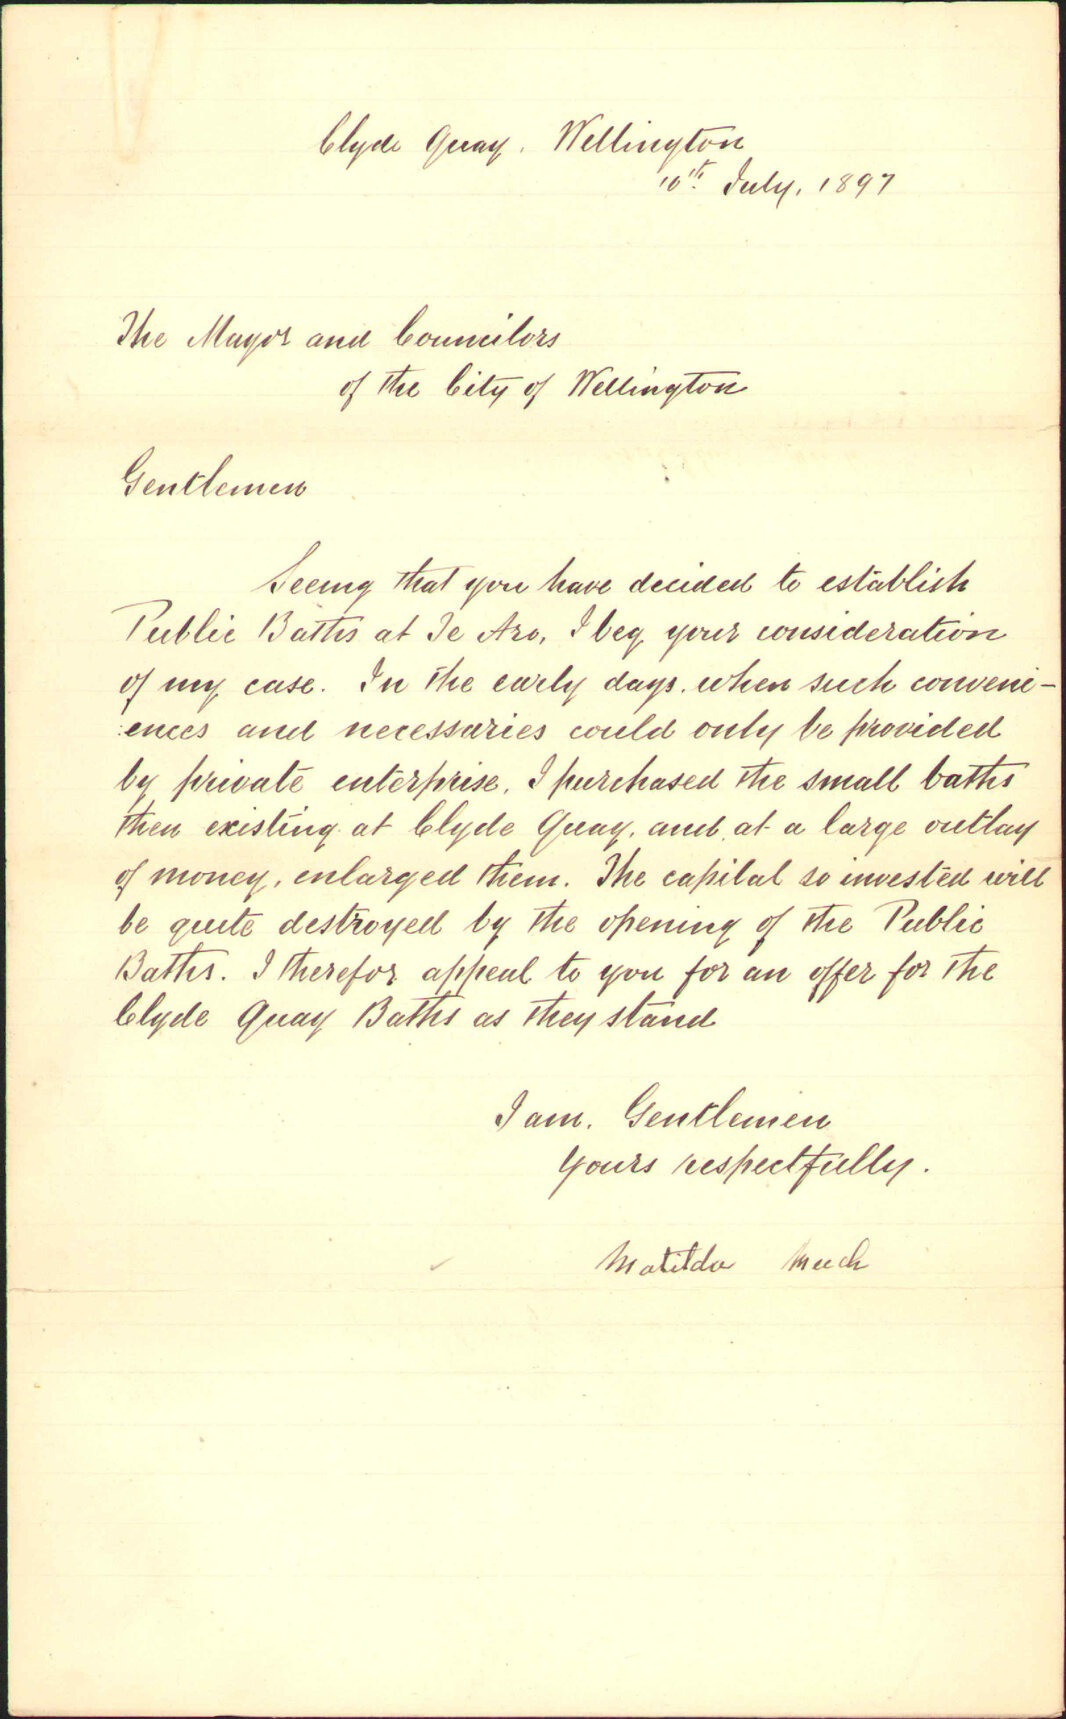 Clyde Quay, Wellington
10th July, 1897
The Mayor and Councilors
of the City of Wellington
Gentlemen
Seeing that you have decided to establish
Public Baths at Te Aro, I beg your consideration
of my case. In the early days, when such conveni-
:ences and necessaries could only be provided
by private enterprise, I purchased the small baths
then existing at Clyde Quay, and at a large outlay
of money, enlarged them. The capital so invested will
be quite destroyed by the opening of the Public
Baths. I therefor appeal to you for an offer for the
Clyde Quay Baths as they stand
I am, Gentlemen
Yours respectfully.
Matilda Meech